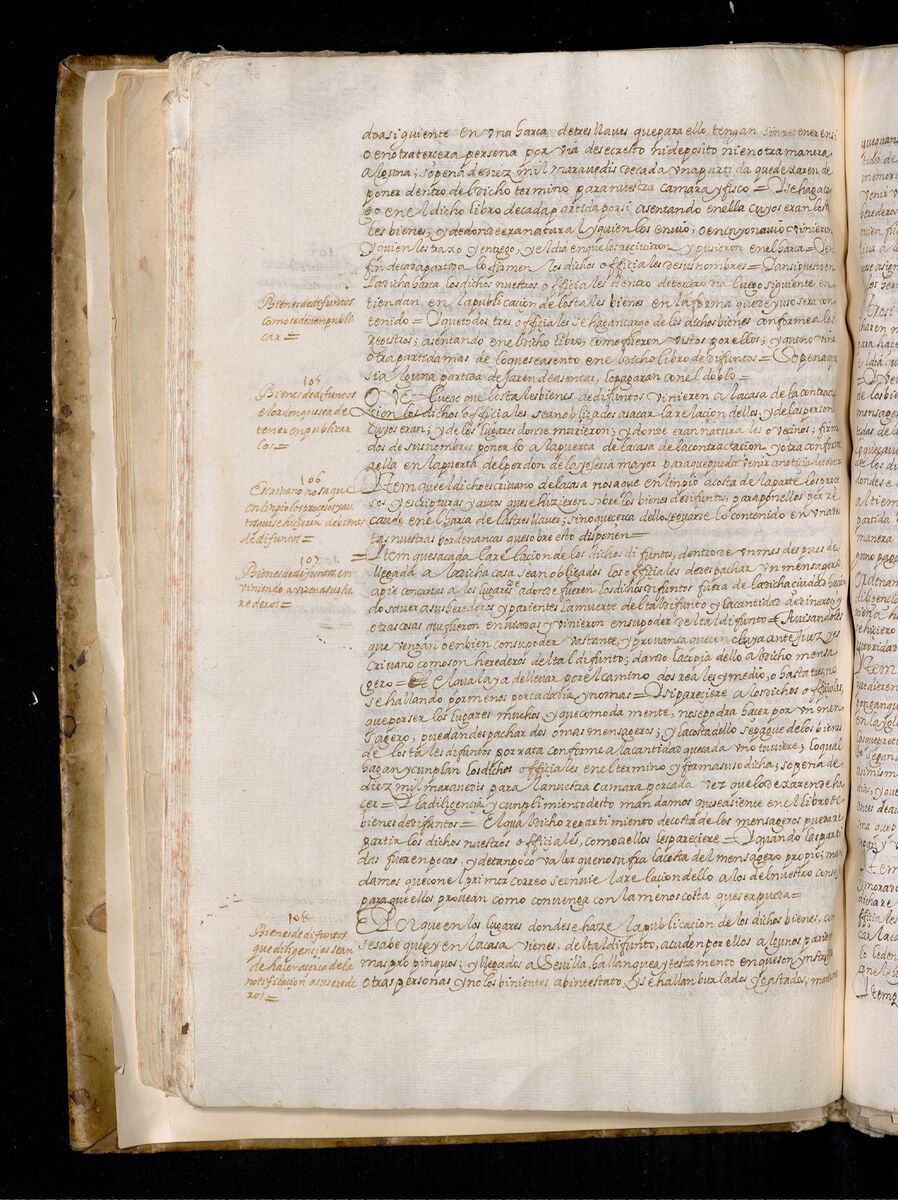 dia siguiente en vna harca de tres llaves que para ello tengan sin retener en si
o en otra tercera persona por via de secresto ni deposito ni en otra manera
alguna; so pena de diez mil maravedis de cada vna partida que dexaren de
poner dentro del dicho termino para nuestra camara y fisco = Y se haga car
go en el dicho libro de cada partida por si asentando en ella cuyos eran los ta
les bienes; y de donde era natural y quien los envio, o en cuyo navio vinieron
y quien los traxo y entrego, y el dia en que los recivieron y pusieron en el harca = Y en
fin de cada partida lo firmen los dichos officiales de sus nombres = Y ansi puesto en
la dicha harca los dichos nuestros officiales dentro de tercero dia luego siguiente en
tiendan en la publicacion de los tales bienes en la forma que de yuso sera con
tenido = Y que todos tres officiales se hagan cargo de los dichos bienes conforme a los
registros; asentando en el dicho libro, como fueron vistos por ellos; y que no vino
otra partida mas de lo que se asento en el dicho libro de difuntos = So pena que
si alguna partida dejaren de asentar, lo pagaran con el doblo =
Bienes de difuntos
como se deven publi
car =
105
Bienes de difuntos
el orden que se a de
tener en publicar
los =
QVE luego que los tales bienes de difuntos vinieren a la casa de la contrata
cion los dichos officiales sean obligados a sacar la relacion dellos, y de las person
cuyos eran; y de los lugares donde murieron; y donde eran naturales o vecinos; firma
dos de sus nombres ponerlo a la puerta de la casa de la contractacion, y otra conforme
a ella en la puerta del perdon de la yglesia mayor para que pueda venir a noticia de todos
106
Escrivano no saque
en limpio los procesos y au
tos que se hicieren de bienes
de difuntos =
Ytem que el dicho escrivano de la casa no saque en limpio a costa de la parte los proce
sos y escripturas y autos que se hizieren sobre los bienes de difuntos para ponellos por re
caudo en el harca de las tres llaves; sino que cerca dello se guarde lo contenido en vna de
estas nuestras hordenancas que sobre esto disponen =
107
Bienes de difuntos en
viniendo avisen a sus he
rederos =
Ytem que sacada la relacion de los dichos difuntos, dentro de vn mes despues de
llegada a la dicha casa sean obligados los officiales de despachar vn mensagero
a pie con cartas a los lugares adonde fueren los dichos difuntos fuera de la dicha ciudad hacien
do saver a sus herederos y parientes la muerte del tal difunto y la cantidad de dineros y
otras cosas que fueron enviadas y vinieron en su poder del tal difunto = Avisandoles
que vengan o enbien con su poder vastante, y provanca que concluya ante juez y es
crivano como son herederos del tal difunto; dando la copia dello al dicho mensa
gero = El qual aya de llevar por el camino dos reales y medio, o hasta tres, no
se hallando por menos por cada dia y no mas = Y si pareciere a los dichos officiales,
que por ser los lugares muchos y que comodamente, no se podra hacer por vn men
sagero; puedan despachar dos o mas mensageros; y la costa dello se pague de los bienes
de los tales difuntos por rata conforme a la cantidad que cada vno tuviere; lo qual
hagan y cunplan los dichos officiales en el termino y forma suso dicha; so pena de
diez mil maravedis para la nuestra camara por cada vez que lo dexaren de ha
cer = Y la diligencia, y cumplimiento desto mandamos que se asiente en el libro de
bienes de difuntos = El qual dicho repartimiento de costa de los mensageros puedan re
partir los dichos nuestros officiales, como a ellos les pareciere = Y quando las parti
das fueren pocas, y de tan poco valor que no sufra la costa del mensagero propio; man
damos que con el primer correo se envie la relacion dello a los del nuestro consejo
para que ellos provean como convenga con la menos costa que ser pueda =
108
Bienes de difuntos
que diligencias sean
de hacer acerca de la
notificacion a sus herede
ros =
POR que en los lugares donde se haze la publicacion de los dichos bienes, como
se sabe que ay en la casa vienes, del tal difunto, acuden por ellos algunos parientes
mas propinquos; y llegados a Sevilla hallan que ay testamento en que son ynstituidas
otras personas y no los binientes abintestato Y se hallan burlados y gastados; man